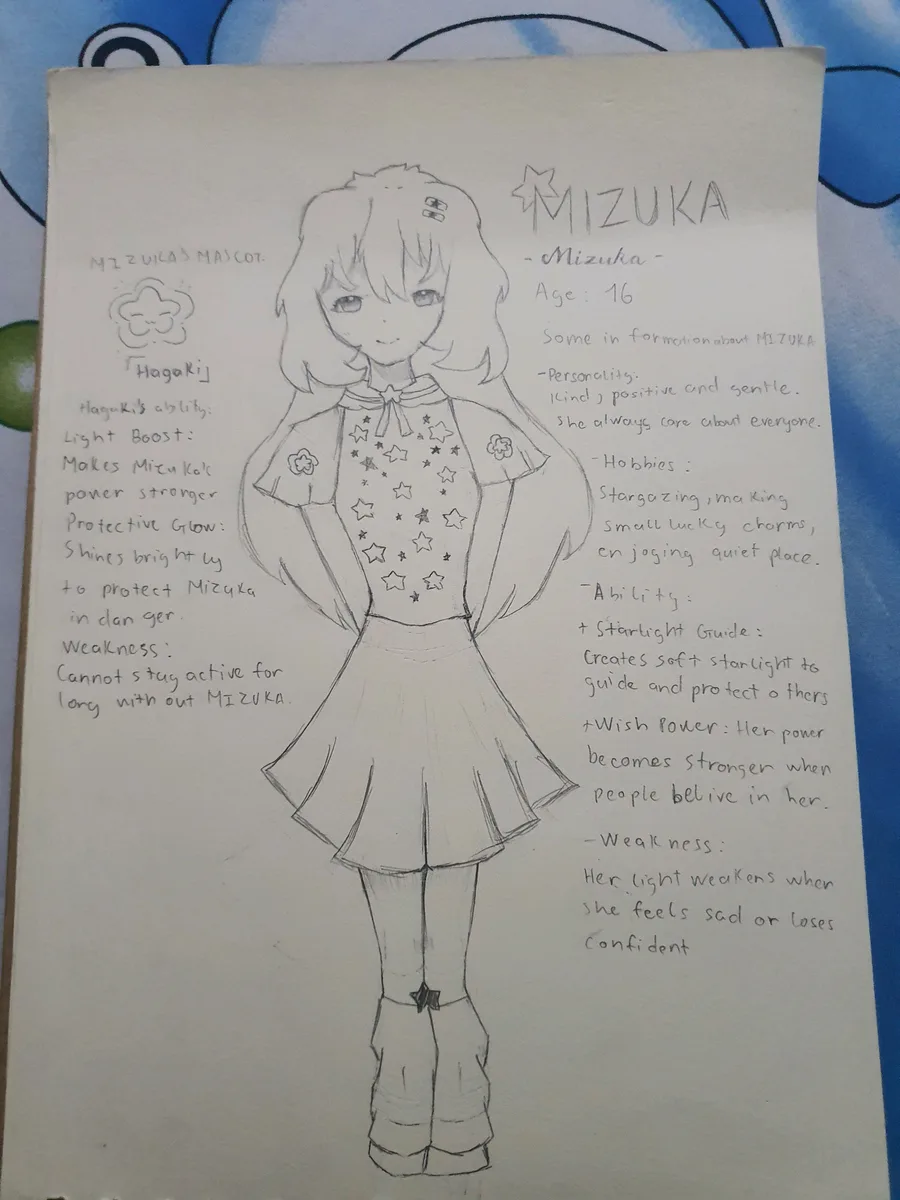 MIZUKA'S MASCOT
「Hagaki」
Hagaki's ability:
Light Boost:
Makes Mizuka's
power stronger
Protective Glow:
Shines brightly
to protect Mizuka
in danger.
Weakness:
Cannot stay active for
long without MIZUKA.
MIZUKA
- Mizuka -
Age: 16
Some information about MIZUKA
- Personality:
Kind, positive and gentle.
She always care about everyone.
- Hobbies:
Stargazing, making
small lucky charms,
enjoging quiet place.
- Ability:
+ Starlight Guide:
Creates soft starlight to
guide and protect others
+ Wish Power: Her power
becomes stronger when
people belive in her.
- Weakness:
Her light weakens when
she feels sad or loses
confident